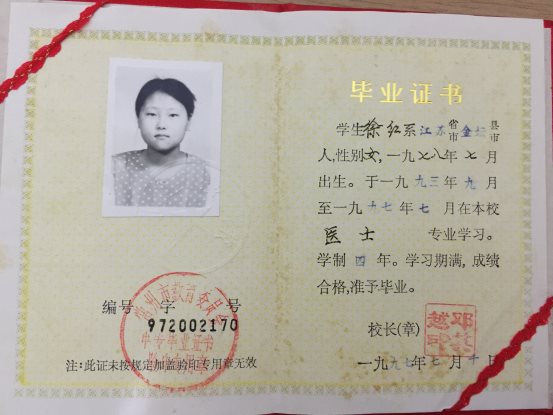 毕业证书
学生徐红系江苏省市金坛县市
人,性别女,一九七八年七月
出生。于一九九三年九月
至一九九七年七月在本校
医士 专业学习。
学制四年。学习期满,成绩
合格,准予毕业。
校长(章)
一九九七年七月十日
编号 字 号
972002170
州市教育委员会
中专毕业证书
注:此证未按规定加盖验印专用章无效